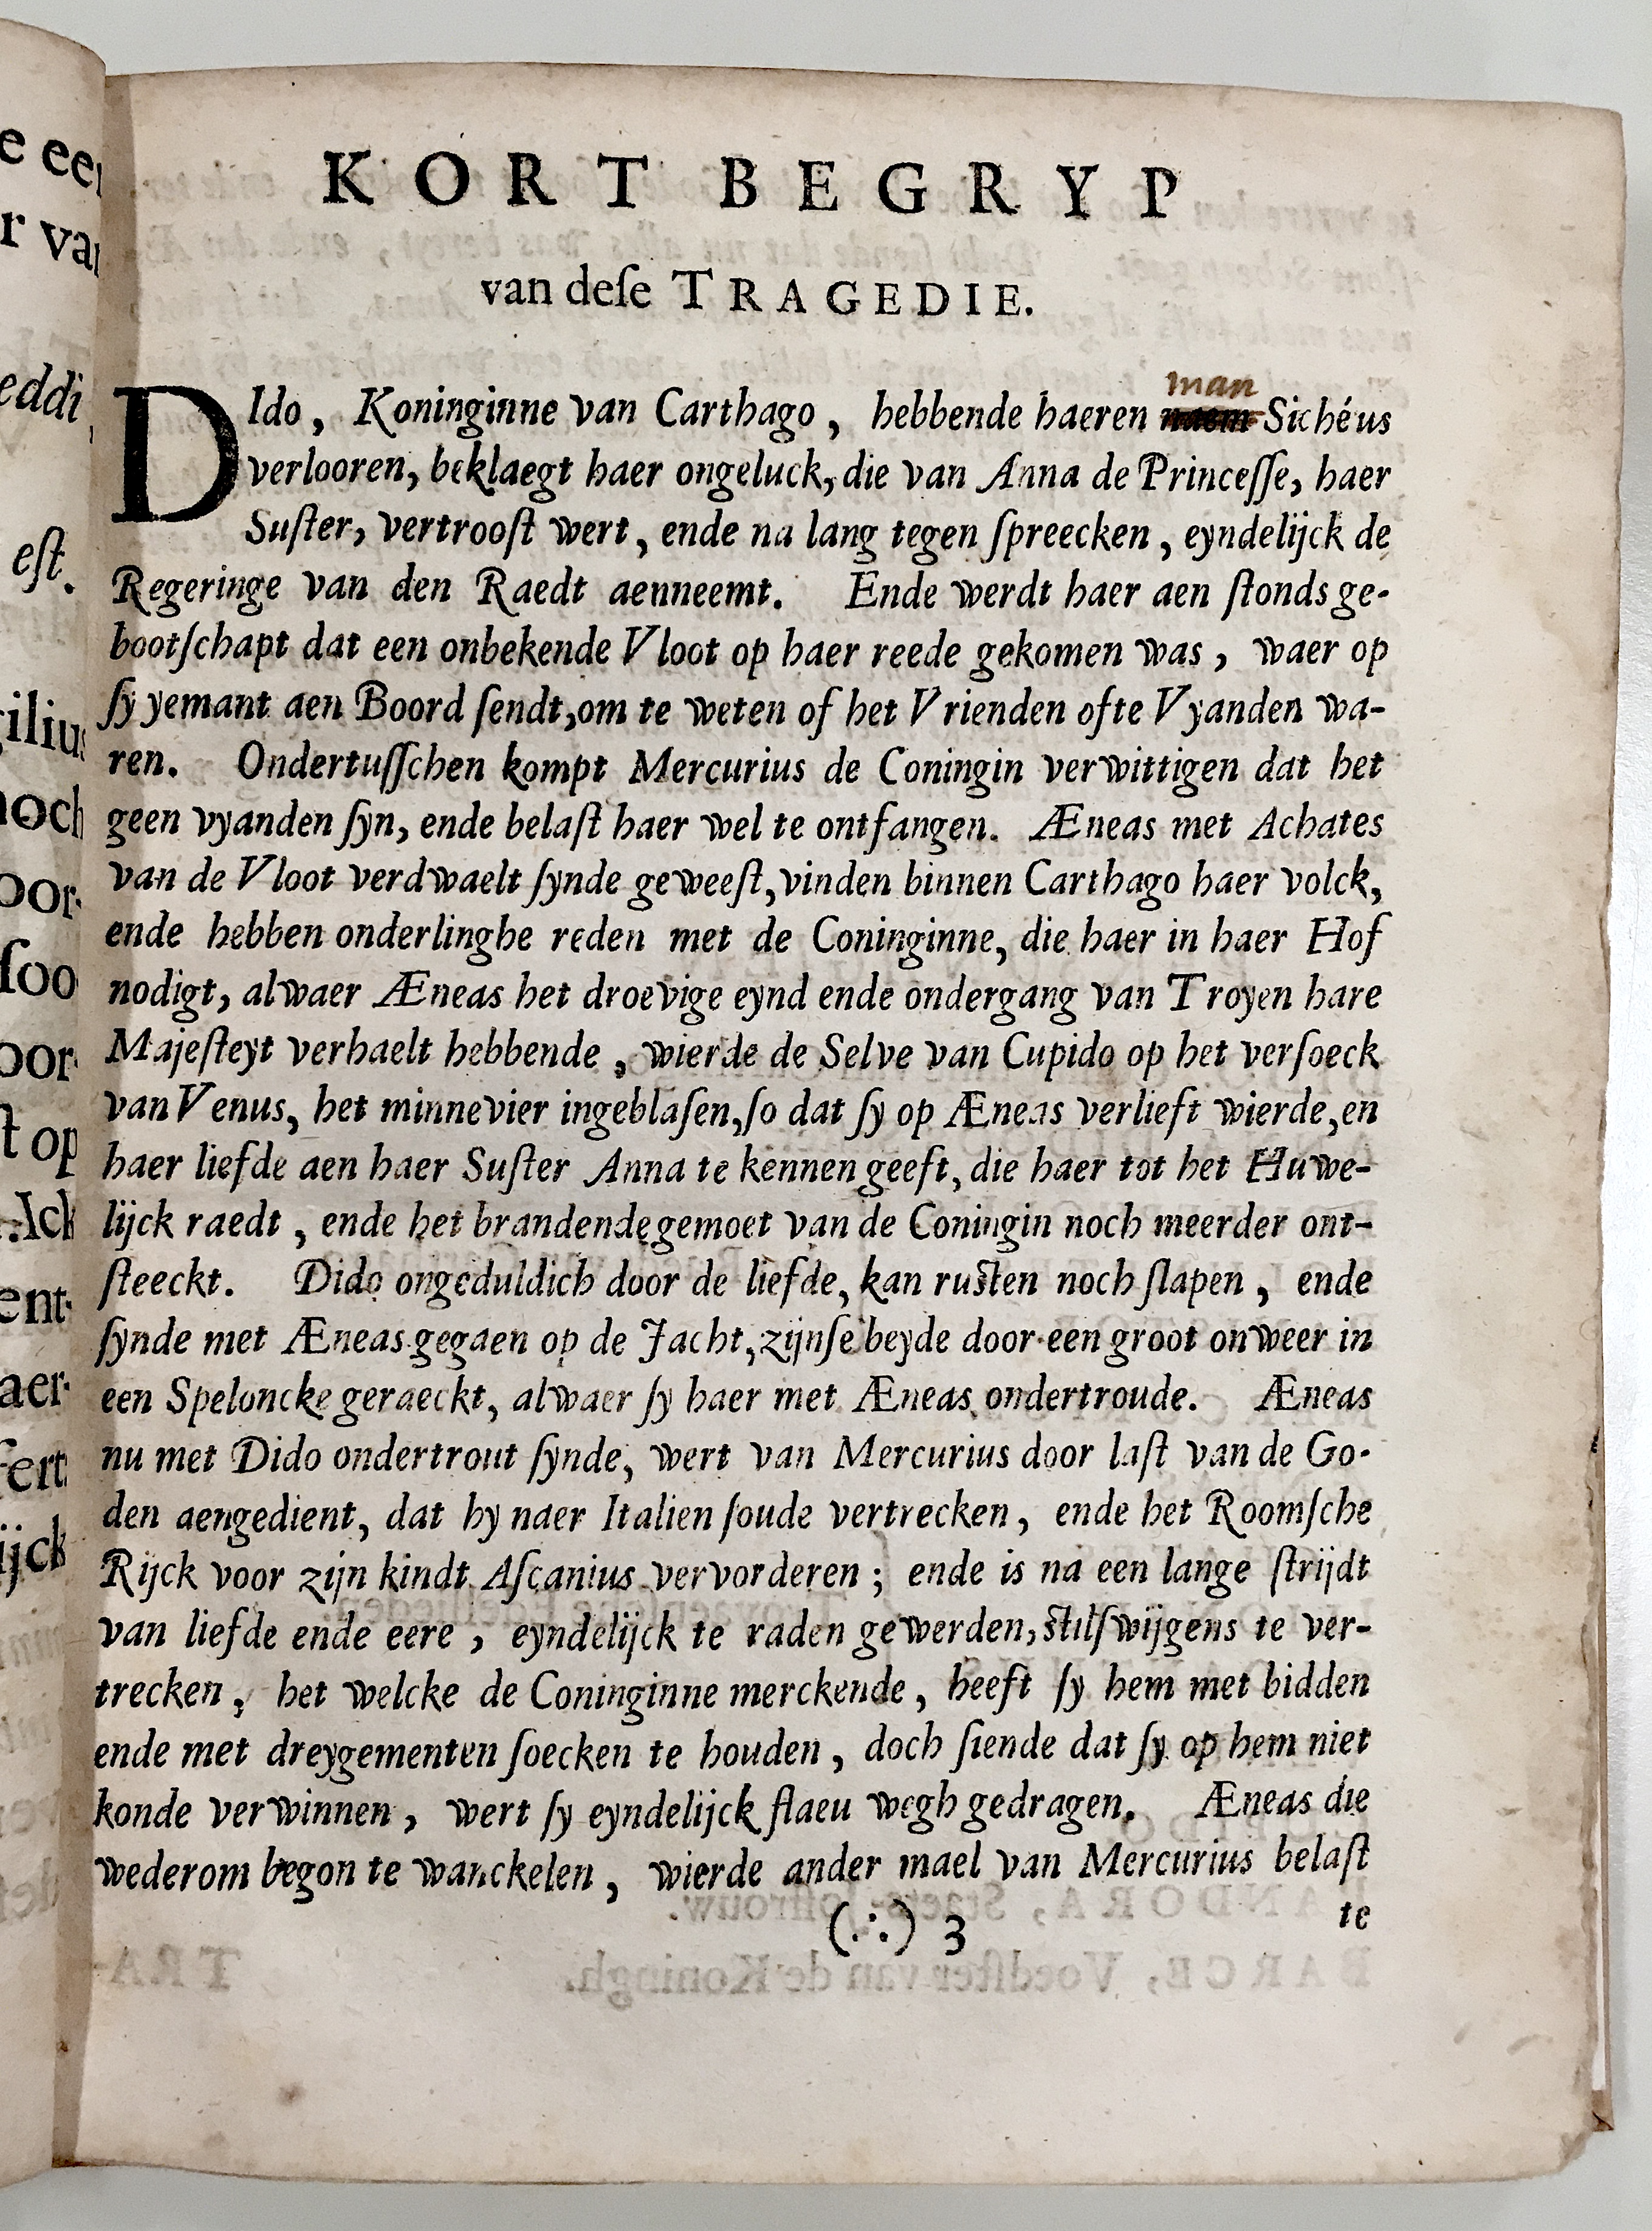 KORT BEGRYP
van deſe TRAGEDIE.
man
DIdo, Koninginne van Carthago, hebbende haeren naem Sichéus
verlooren, beklaegt haer ongeluck, die van Anna de Princeſſe, haer
Suſter, vertrooſt wert, ende na lang tegen ſpreecken, eyndelijck de
Regeringe van den Raedt aenneemt. Ende werdt haer aen ſtonds ge-
bootſchapt dat een onbekende Vloot op haer reede gekomen was, waer op
ſy yemant aen Boord ſendt, om te weten of het Vrienden ofte Vyanden wa-
ren. Ondertuſſchen kompt Mercurius de Coningin verwittigen dat het
geen vyanden ſyn, ende belaſt haer wel te ontfangen. Æneas met Achates
van de Vloot verdwaelt ſynde geweeſt, vinden binnen Carthago haer volck,
ende hebben onderlinghe reden met de Coninginne, die haer in haer Hof
nodigt, alwaer Æneas het droevige eynd ende ondergang van Troyen hare
Majeſteyt verhaelt hebbende, wierde de Selve van Cupido op het verſoeck
van Venus, het minnevier ingeblaſen, ſo dat ſy op Æneas verlieft wierde, en
haer liefde aen haer Suſter Anna te kennen geeft, die haer tot het Huwe-
lijck raedt, ende het brandende gemoet van de Coningin noch meerder ont-
ſteeckt. Dido ongeduldich door de liefde, kan ruſten noch ſlapen, ende
ſynde met Æneas gegaen op de Jacht, zijnſe beyde door een groot onweer in
een Speloncke geraeckt, alwaer ſy haer met Æneas ondertroude. Æneas
nu met Dido ondertrout ſynde, wert van Mercurius door laſt van de Go-
den aengedient, dat hy naer Italien ſoude vertrecken, ende het Roomſche
Rijck voor zijn kindt Aſcanius vervorderen; ende is na een lange ſtrijdt
van liefde ende eere, eyndelijck te raden gewerden, ſtilſwijgens te ver-
trecken, het welcke de Coninginne merckende, heeft ſy hem met bidden
ende met dreygementen ſoecken te houden, doch ſiende dat ſy op hem niet
konde verwinnen, wert ſy eyndelijck flaeu wegh gedragen. Æneas die
wederom begon te wanckelen, wierde ander mael van Mercurius belaſt
(∴) 3
te